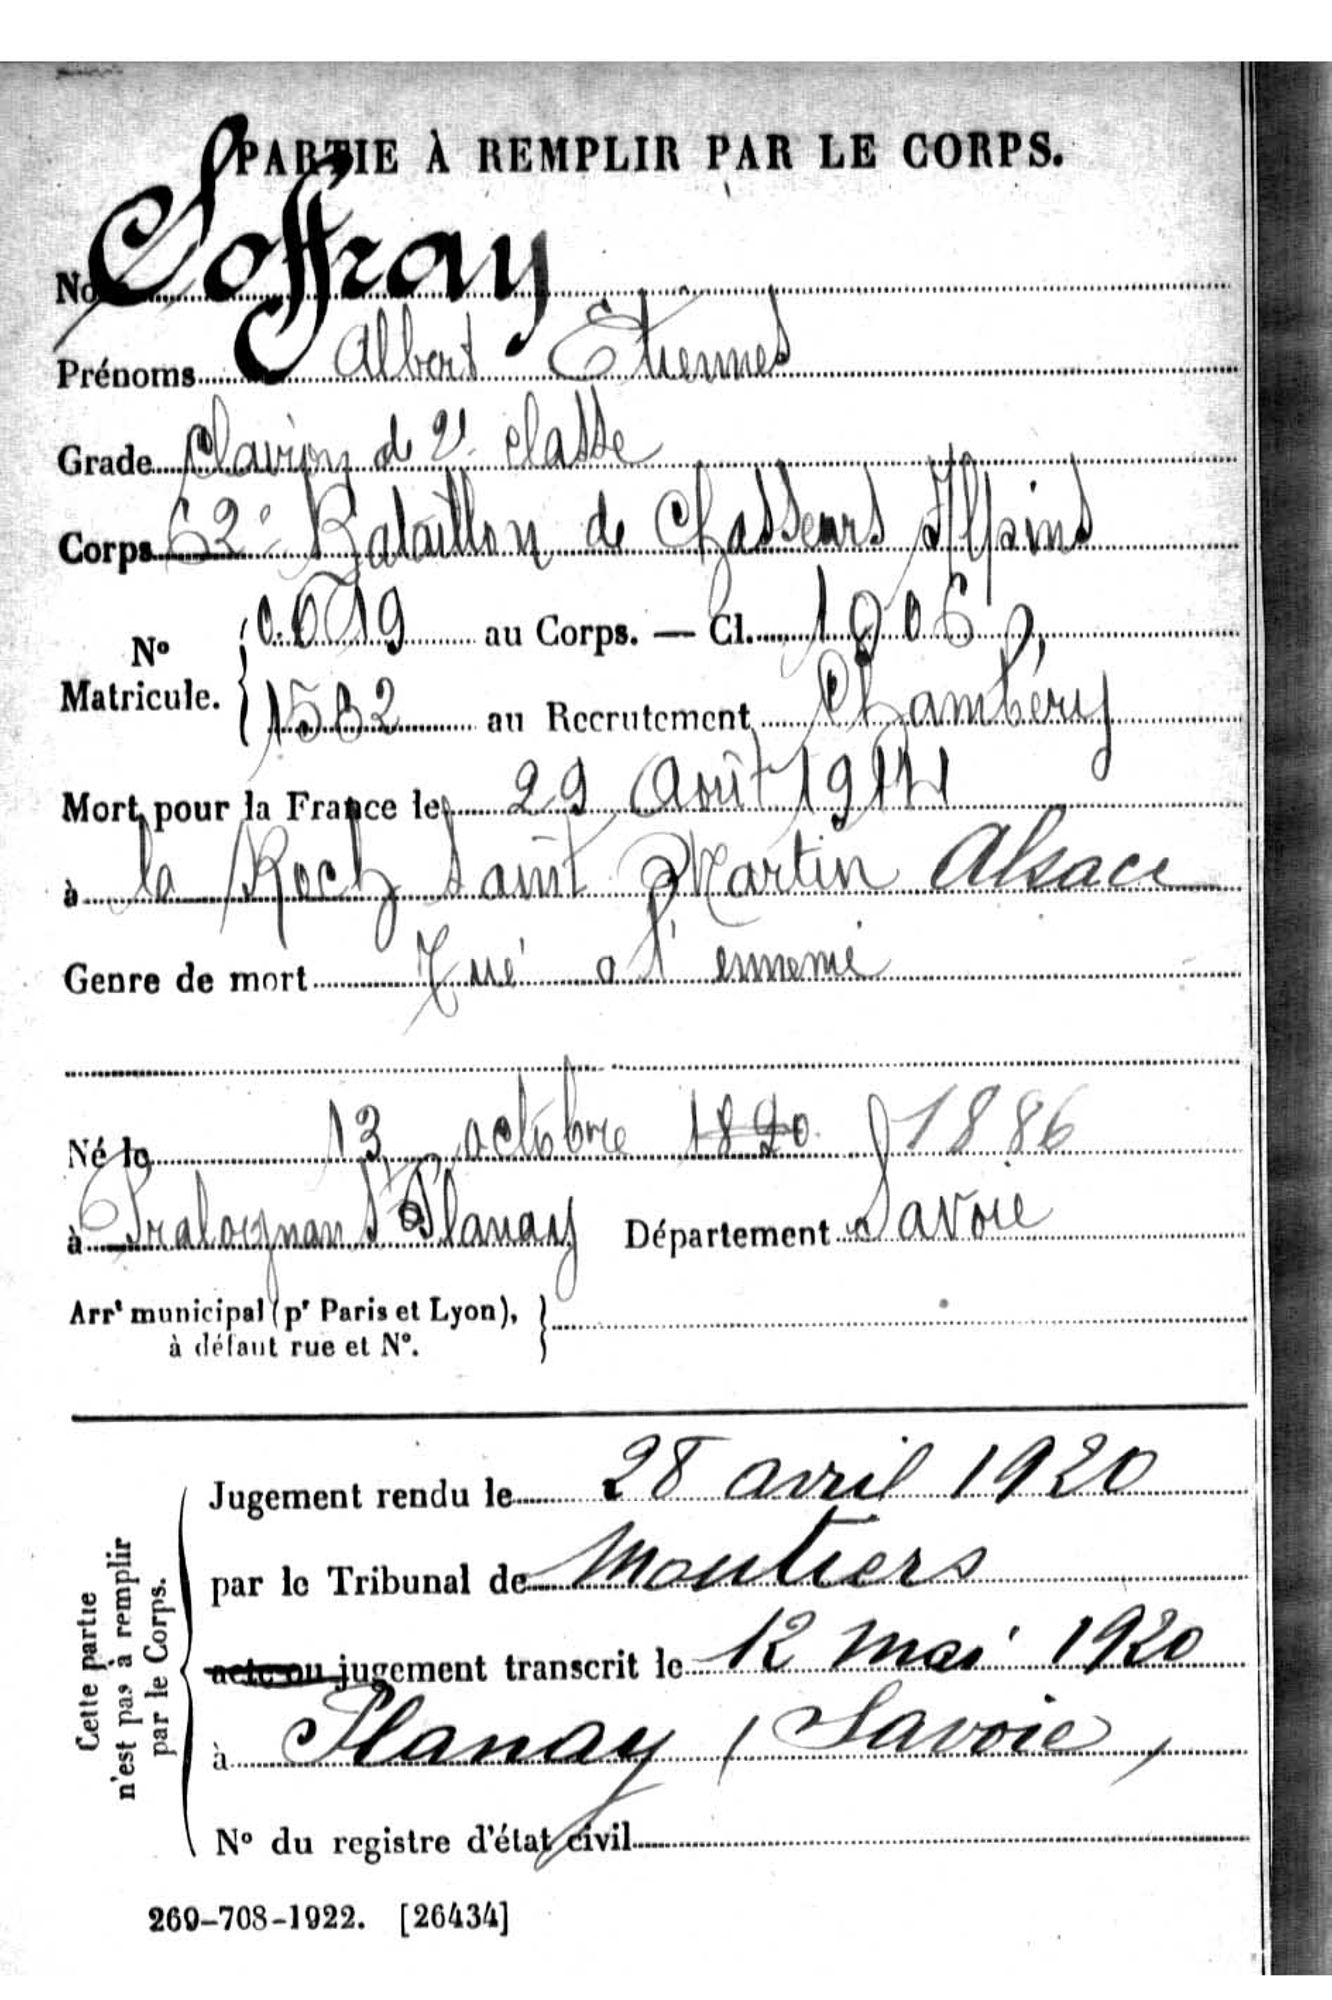 PARTIE À REMPLIR PAR LE CORPS.
Nom Soffray
Prénoms Albert Etiennes
Grade Clairon de 2e classe
Corps 62e Bataillon de Chasseurs Alpins
No Matricule. 0.619 au Corps. — Cl. 1906
1582 au Recrutement Chambéry
Mort pour la France le 29 Août 1914
à la Roch Saint Martin Alsace
Genre de mort Tué a l'ennemie
Né le 13 octobre 1820 1886
à Pralognan Planay Département Savoie
Arrt municipal (pr Paris et Lyon),
à défaut rue et No.
Cette partie
n'est pas à remplir
par le Corps.
Jugement rendu le 28 avril 1920
par le Tribunal de Moutiers
acte ou jugement transcrit le 12 mai 1920
à Planay (Savoie)
No du registre d'état civil
269-708-1922. [26434]